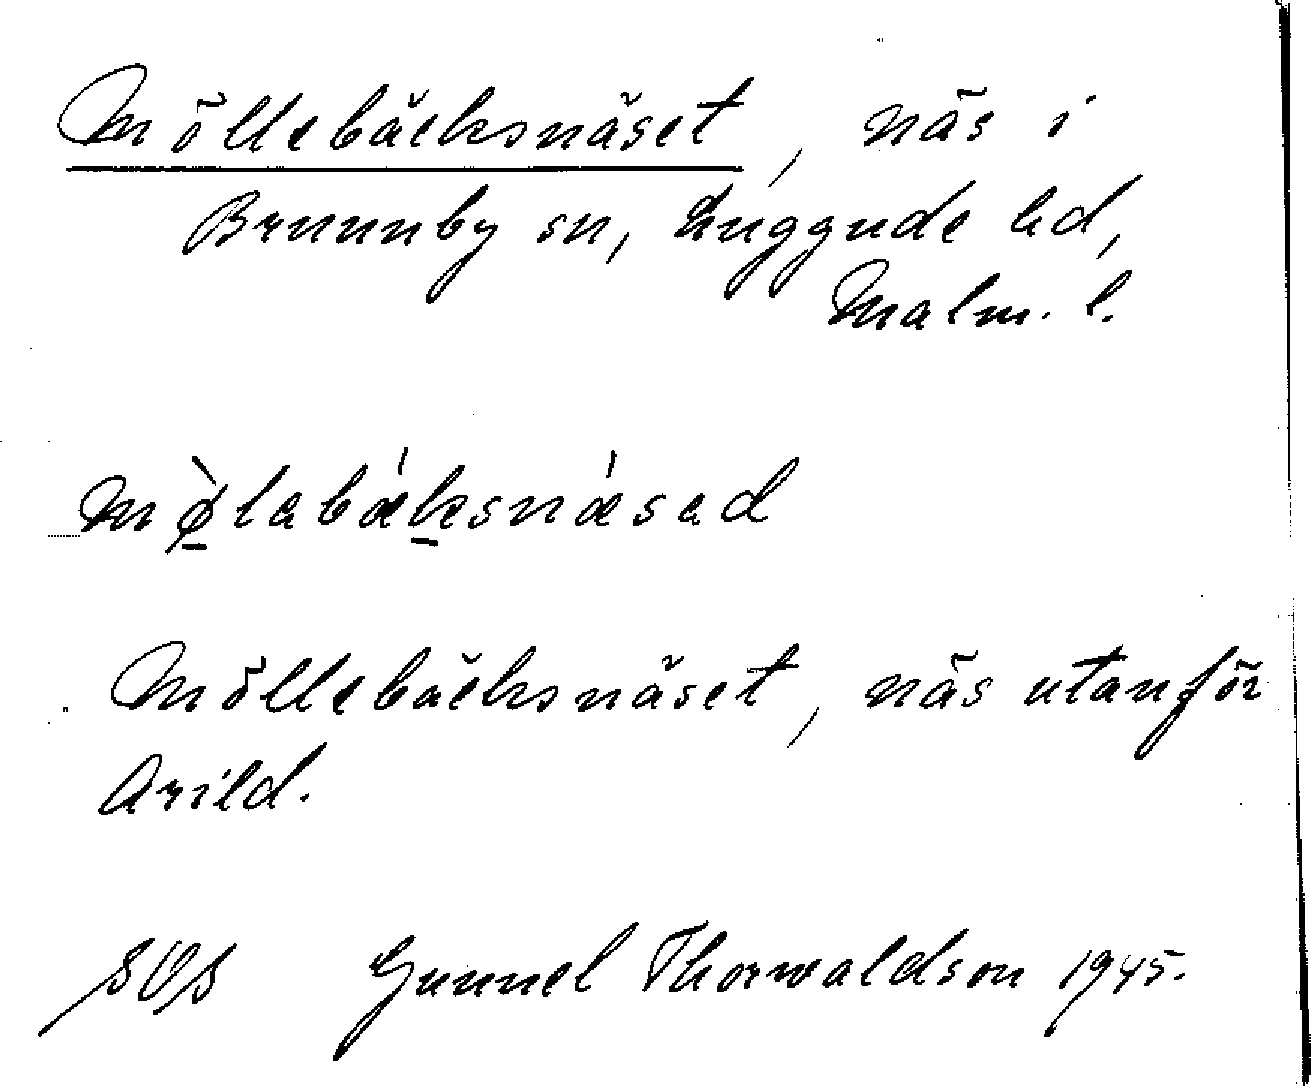 Möllebäcksnäset, näs i
Brunnby sn, Luggude hd,
Malm. l.
mø̀labæksnæsad
Möllebäcksnäset, näs utanför
Arild.
SOS Gunnel Thorwaldson 1945.